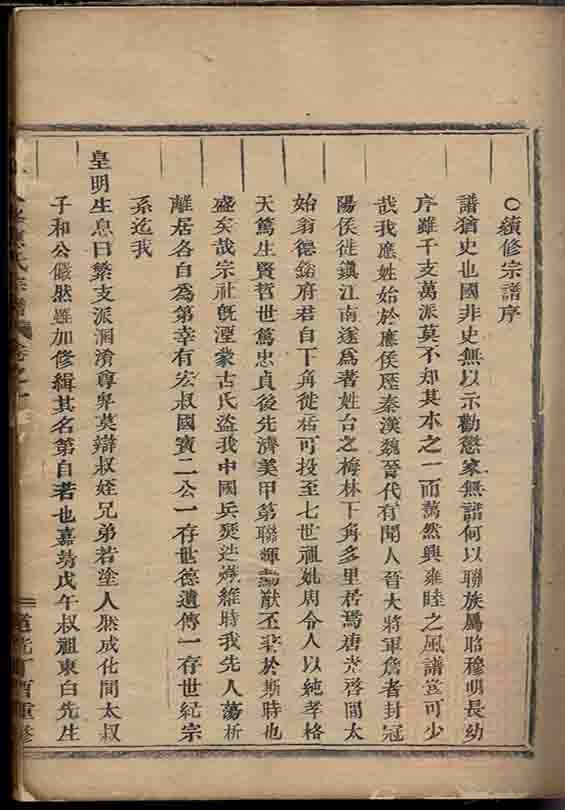 ○續修宗譜序
譜猶史也國非史無以示勸懲家無譜何以聯族屬昭穆明長幼
序雖千支萬派莫不知其本之一而藹然興雍睦之風譜豈可少
哉我應姓始於應侯歷秦漢魏晉代有聞人晉大將軍詹者封冠
陽侯徙鎮江南遂爲著姓台之梅林下角多里居焉唐光啓間太
始翁德鏞府君自下角徙居可投至七世祖妣周令人以純孝格
天篤生賢哲世篤忠貞後先濟美甲第聯輝勳猷丕著於斯時也
盛矣哉宗社旣湮蒙古氏盜我中國兵燹迭燬維時我先人蕩析
離居各自爲第幸有宏叔國寶二公一存世德遺傳一存世紀宗
系迄我
皇明生息日繁支派溷淆尊卑莫辯叔姪兄弟若塗人然成化間太叔
子和公儼然難加修緝其名第自若也嘉靖戊午叔祖東白先生
氏宗譜 卷之
道光丁酉重修